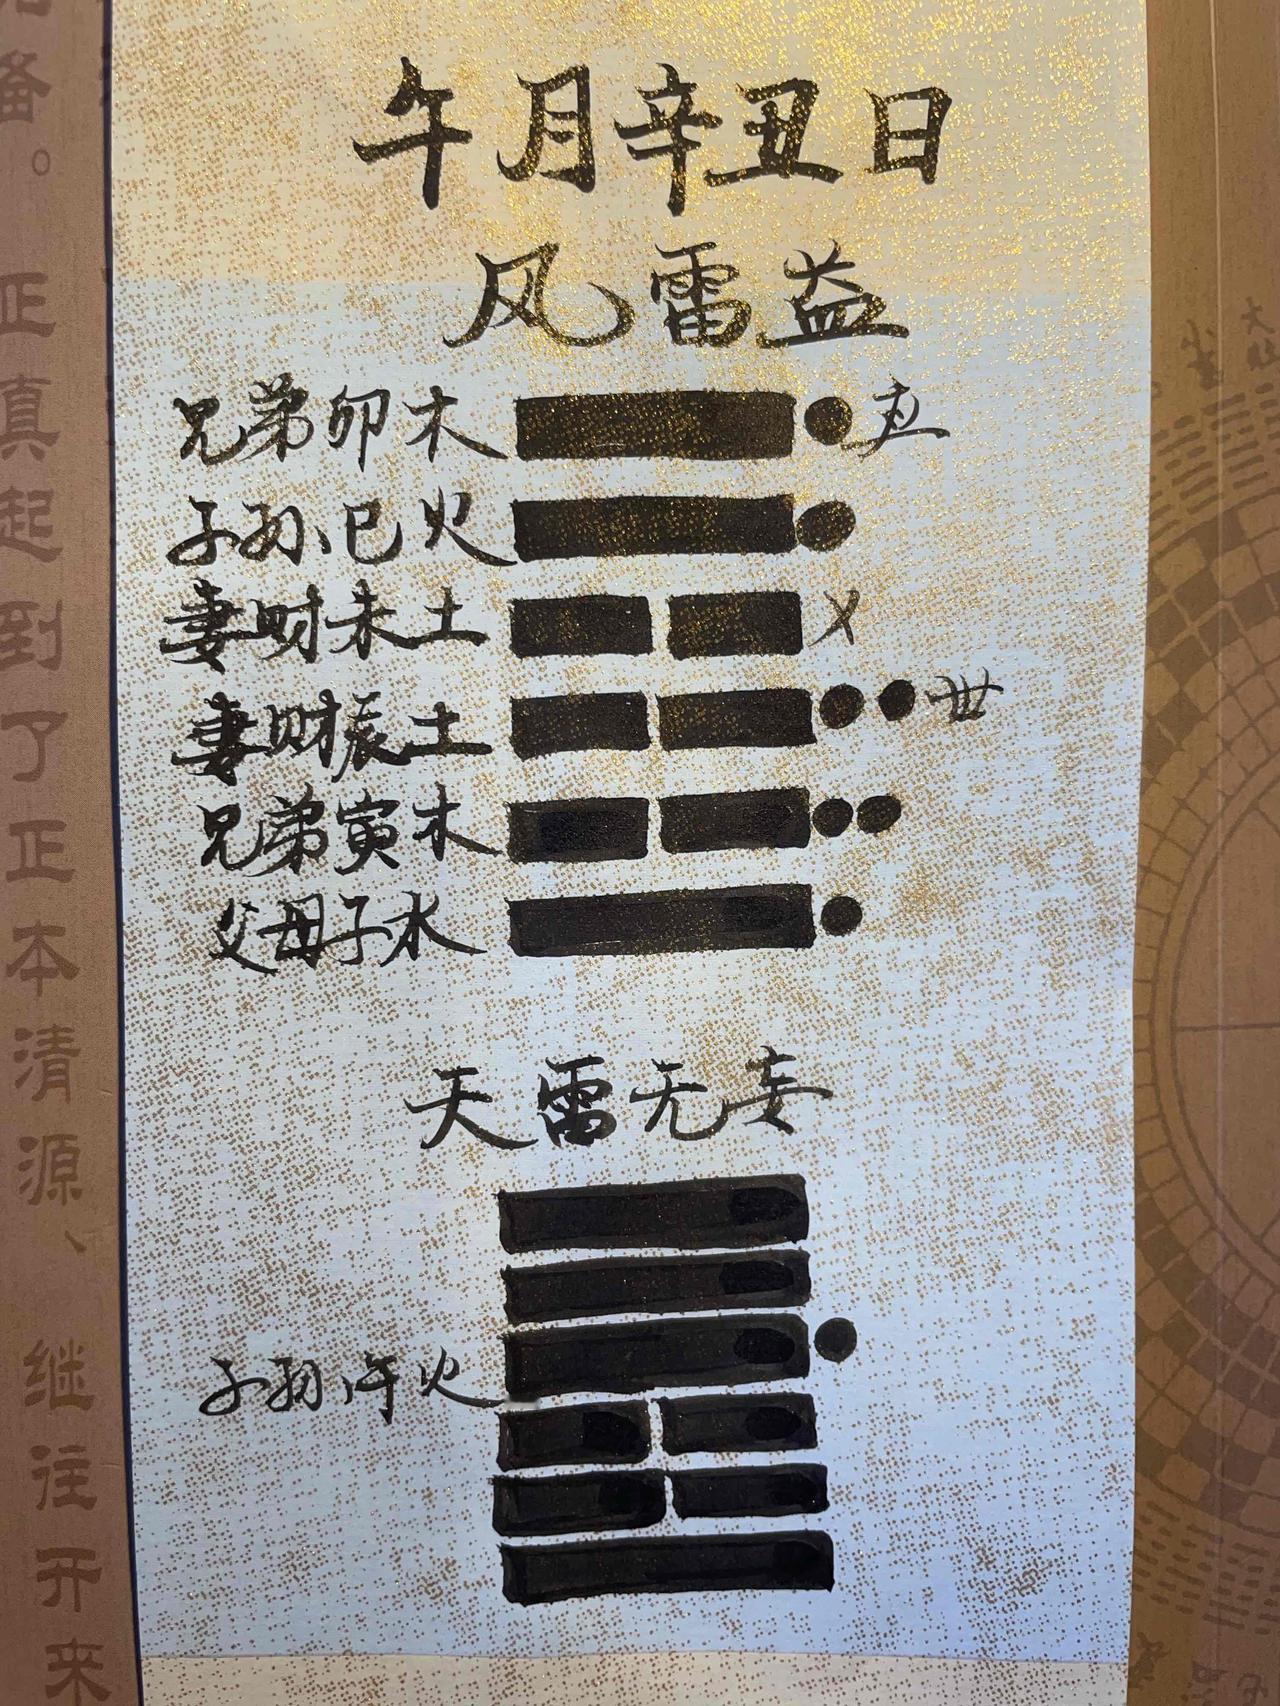 午月辛丑日
风雷益
兄弟卯木 应
子孙巳火
妻财未土 X
妻财辰土 世
兄弟寅木
父母子水
天雷无妄
子孙午火
备。正真起到了正本清源、继往开来